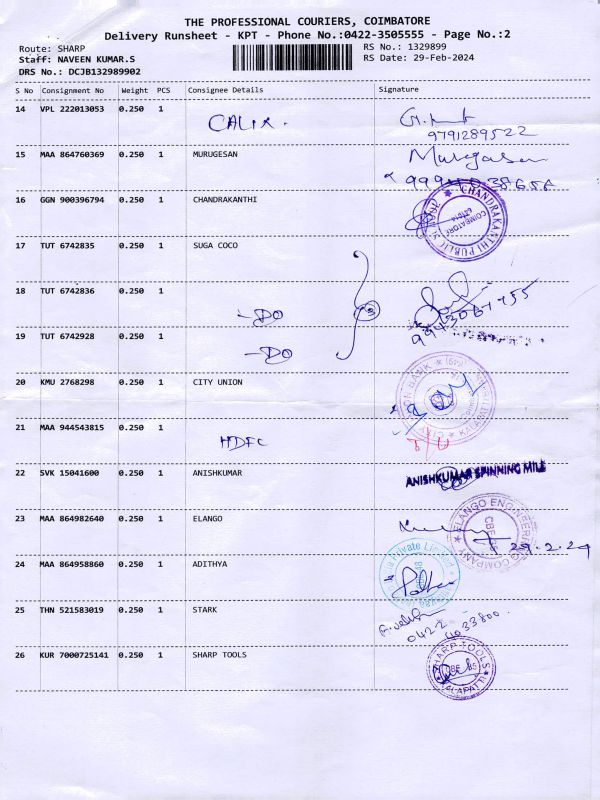 THE PROFESSIONAL COURIERS, COIMBATORE
Delivery Runsheet - KPT - Phone No.:0422-3505555 - Page No.:2
Route: SHARP
RS No.: 1329899
Staff: NAVEEN KUMAR.S
RS Date: 29-Feb-2024
DRS No.: DCJB132989902
S No Consignment No Weight PCS Consignee Details Signature
14 VPL 222013053 0.250 1
9791289522
15 MAA 864760369 0.250 1 MURUGESAN Murugesan
16 GGN 900396794 0.250 1 CHANDRAKANTHI
CHANDRAKANTHI PUBLIC
COIMBATORE
641014
17 TUT 6742835 0.250 1 SUGA COCO
18 TUT 6742836 0.250 1 -DO
19 TUT 6742928 0.250 1
-DO
20 KMU 2768298 0.250 1 CITY UNION
21 MAA 944543815 0.250 1 HDFC
22 SVK 15041600 0.250 1 ANISHKUMAR ANISHKUMAR SPINNING MILL
23 MAA 864982640 0.250 1 ELANGO
ELANGO ENGINEERING COMPANY
CBE
29.2.24
24 MAA 864958860 0.250 1 ADITHYA
Private Limited
25 THN 521583019 0.250 1 STARK
0422
33800
26 KUR 7000725141 0.250 1 SHARP TOOLS
SHARP TOOLS
KALAPATTI